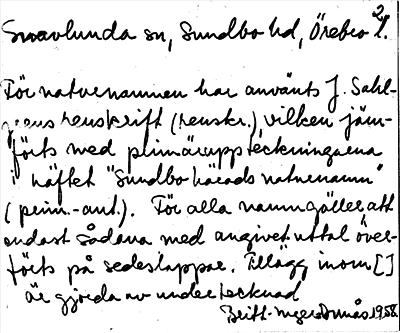 Snavlunda sn, Sundbo hd, Örebro l.
2
För naturnamnen har använts J. Sahl-
grens renskrift (renskr.), vilken jäm-
förts med primäruppteckningarna
i häftet "Sundbo härads naturnamn"
(prim.-ant.). För alla namn gäller att
endast sådana med angivet uttal över-
förts på sedeslappar. Tillägg inom []
är gjorda av undertecknad
Britt-Inger 1958.